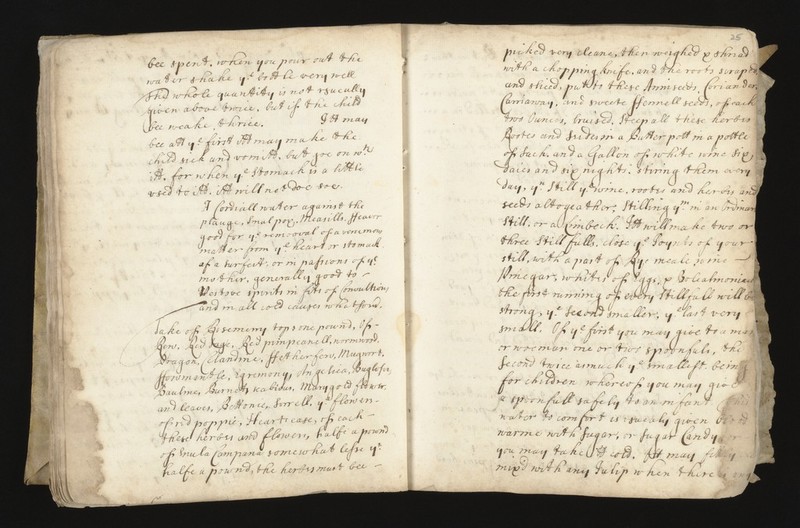 bee spent, when you pour out the
water shake ye bottle very well
the whole quantity is not usually
given above twice, but if the child
bee weake, thrice. It may
bee att ye first itt may make the
child sick and vomitt, but goe on wth
itt, for when ye stomack is a little
used to itt, itt will not doe soe.
A Cordiall water against the
plauge, smal pox, Measills, feaver
good for ye removal of a venimous
matter from ye heart or stomack
of a surfeit, or in passions of ye
mother, generally good to
Restore spirits in fits of Convultions
and in all cold causes whatsoever.
Take of Rosemary tops one pound, of
Red Sage, Red pimpernell, wormwood
Dragon, Celandine, ffetherfew, Mugwort,
Egremony, Angelica, Buglose,
Baulme, Burnett, scabious, Marygold flowers
and leaves, Bettonie, Sorrell, ye flowers
of red poppie, Heartsease, of each
these herbes and flowers, halfe a pound
of Enula Campana somewhat lesse yn
halfe a pownd, the herbes must bee
25
picked very cleane, then weighed & shred
with a chopping knife, and the roots scraped
and sliced, put to these Anniseeds, Coriander,
Carriaway, and sweete ffennell seeds, of each
two Ounces, bruised, steep all these herbes
Rootes and seedes in a Butter pott in a pottle
of Sack, and a Gallon of white wine six
daies and six nights, stiring them every
day, yn Still ye wine, rootes and herbs and
seeds altogeather, Stilling ym in an Ordinary
Still, or a Limbeck. Itt will make two or
three Still fulls, close ye Joynts of your
still, with a past of Rye meale
Vinegar, whites of Eggs, & Bolearmoniack
the first runing of every Still full will be
strong, ye second smaller, ye last very
small. Of ye first you may give to a man
or woeman one or two spoonfuls, the
Second twice as much, ye smallest being
for children whereof you may give
a spoonfull safely to an infant
water to comfort is usualy given
warme with Sugar, or Sugar Candy or
you may take itt cold. Itt may
mixd with any Julip when there